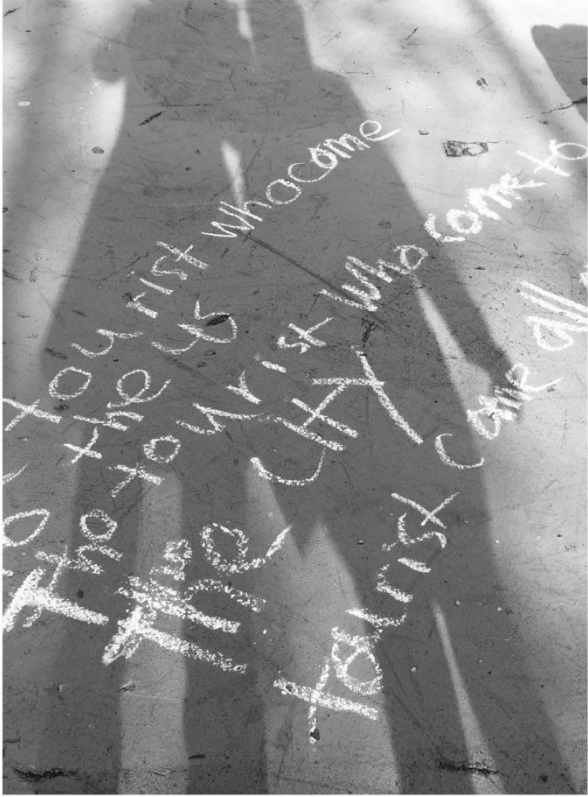 tourist whocome
the us
Tho tourist who come to
The city
tourist came all